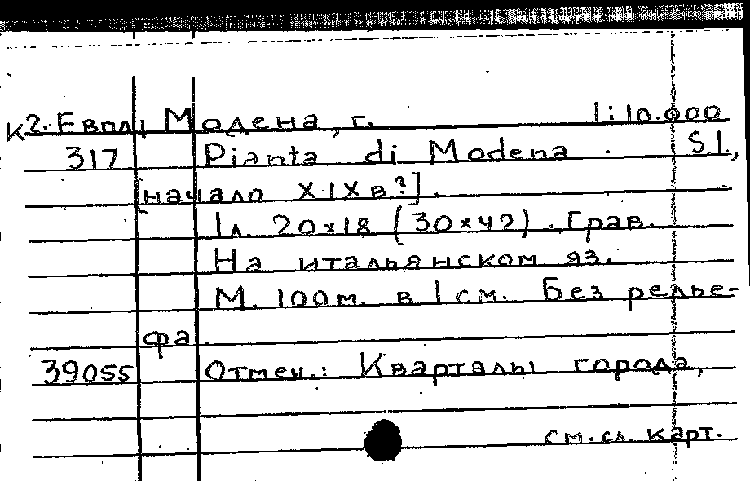 К2. Евпл, Модена, г. 1:10.000
317 Pianta di Modena. S.l.,
[начало XIXв?].
1л. 20×18 (30×42). Грав.
На итальянском яз.
М. 100м. в 1 см. Без релье-
фа.
39055 Отмеч.: Кварталы города,
см. сл. карт.